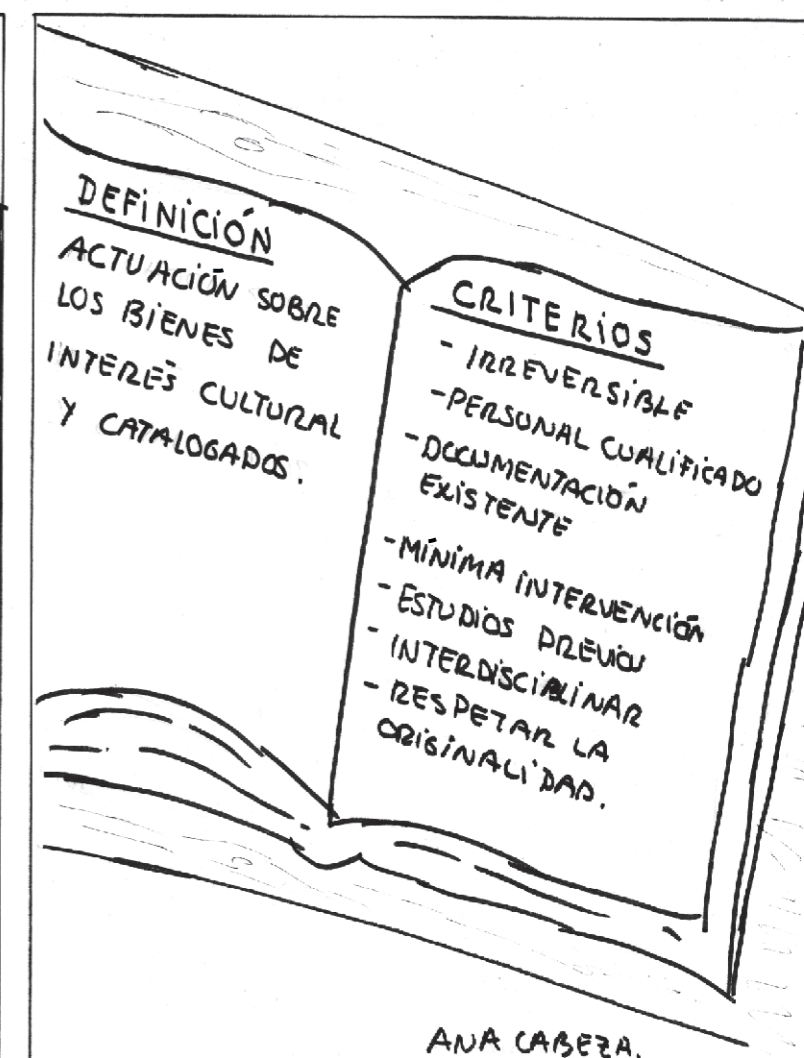 DEFINICIÓN
ACTUACIÓN SOBRE
LOS BIENES DE
INTERÉS CULTURAL
Y CATALOGADOS.
CRITERIOS
- IRREVERSIBLE
- PERSONAL CUALIFICADO
- DOCUMENTACIÓN
EXISTENTE
- MÍNIMA INTERVENCIÓN
- ESTUDIOS PREVIOS
- INTERDISCIPLINAR
- RESPETAR LA
ORIGINALIDAD.
ANA CABEZA.